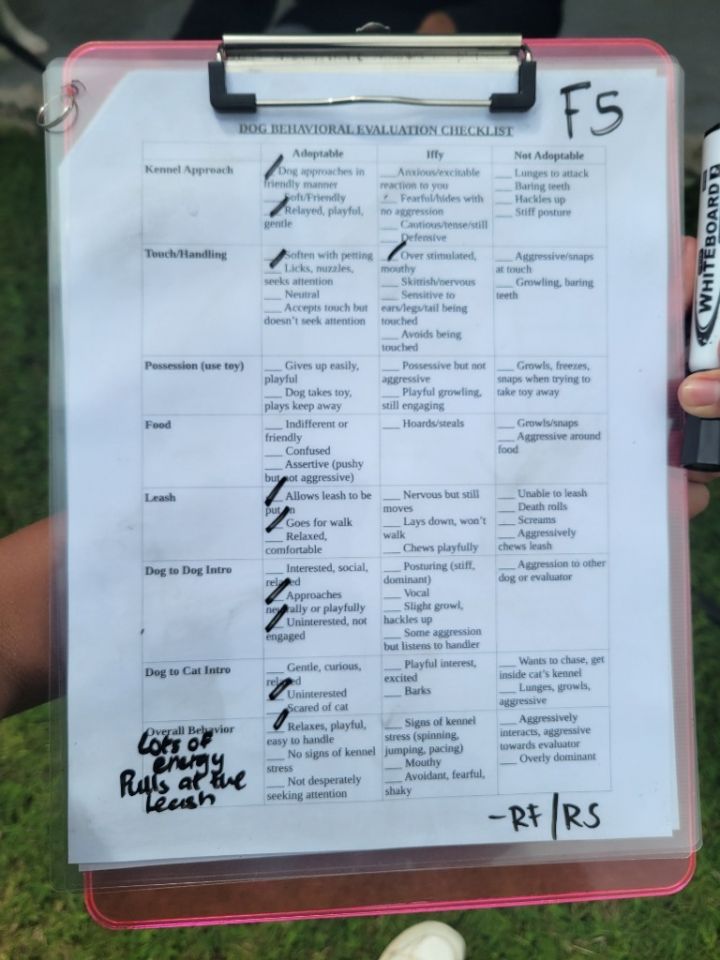 F5
DOG BEHAVIORAL EVALUATION CHECKLIST
Adoptable Iffy Not Adoptable
Kennel Approach
___ Dog approaches in
friendly manner
___ Soft/Friendly
___ Relayed, playful,
gentle
___ Anxious/excitable
reaction to you
___ Fearful/hides with
no aggression
___ Cautious/tense/still
___ Defensive
___ Lunges to attack
___ Baring teeth
___ Hackles up
___ Stiff posture
Touch/Handling
___ Soften with petting
___ Licks, nuzzles,
seeks attention
___ Neutral
___ Accepts touch but
doesn't seek attention
___ Over stimulated,
mouthy
___ Skittish/nervous
___ Sensitive to
ears/legs/tail being
touched
___ Avoids being
touched
___ Aggressive/snaps
at touch
___ Growling, baring
teeth
Possession (use toy)
___ Gives up easily,
playful
___ Dog takes toy,
plays keep away
___ Possessive but not
aggressive
___ Playful growling,
still engaging
___ Growls, freezes,
snaps when trying to
take toy away
Food
___ Indifferent or
friendly
___ Confused
___ Assertive (pushy
but not aggressive)
___ Hoards/steals
___ Growls/snaps
___ Aggressive around
food
Leash
___ Allows leash to be
put on
___ Goes for walk
___ Relaxed,
comfortable
___ Nervous but still
moves
___ Lays down, won't
walk
___ Chews playfully
___ Unable to leash
___ Death rolls
___ Screams
___ Aggressively
chews leash
Dog to Dog Intro
___ Interested, social,
relaxed
___ Approaches
neutrally or playfully
___ Uninterested, not
engaged
___ Posturing (stiff,
dominant)
___ Vocal
___ Slight growl,
hackles up
___ Some aggression
but listens to handler
___ Aggression to other
dog or evaluator
Dog to Cat Intro
___ Gentle, curious,
relaxed
___ Uninterested
___ Scared of cat
___ Playful interest,
excited
___ Barks
___ Wants to chase, get
inside cat's kennel
___ Lunges, growls,
aggressive
Overall Behavior
Lots of
energy
Pulls at the
leash
___ Relaxes, playful,
easy to handle
___ No signs of kennel
stress
___ Not desperately
seeking attention
___ Signs of kennel
stress (spinning,
jumping, pacing)
___ Mouthy
___ Avoidant, fearful,
shaky
___ Aggressively
interacts, aggressive
towards evaluator
___ Overly dominant
-RF/RS
WHITEBOARD